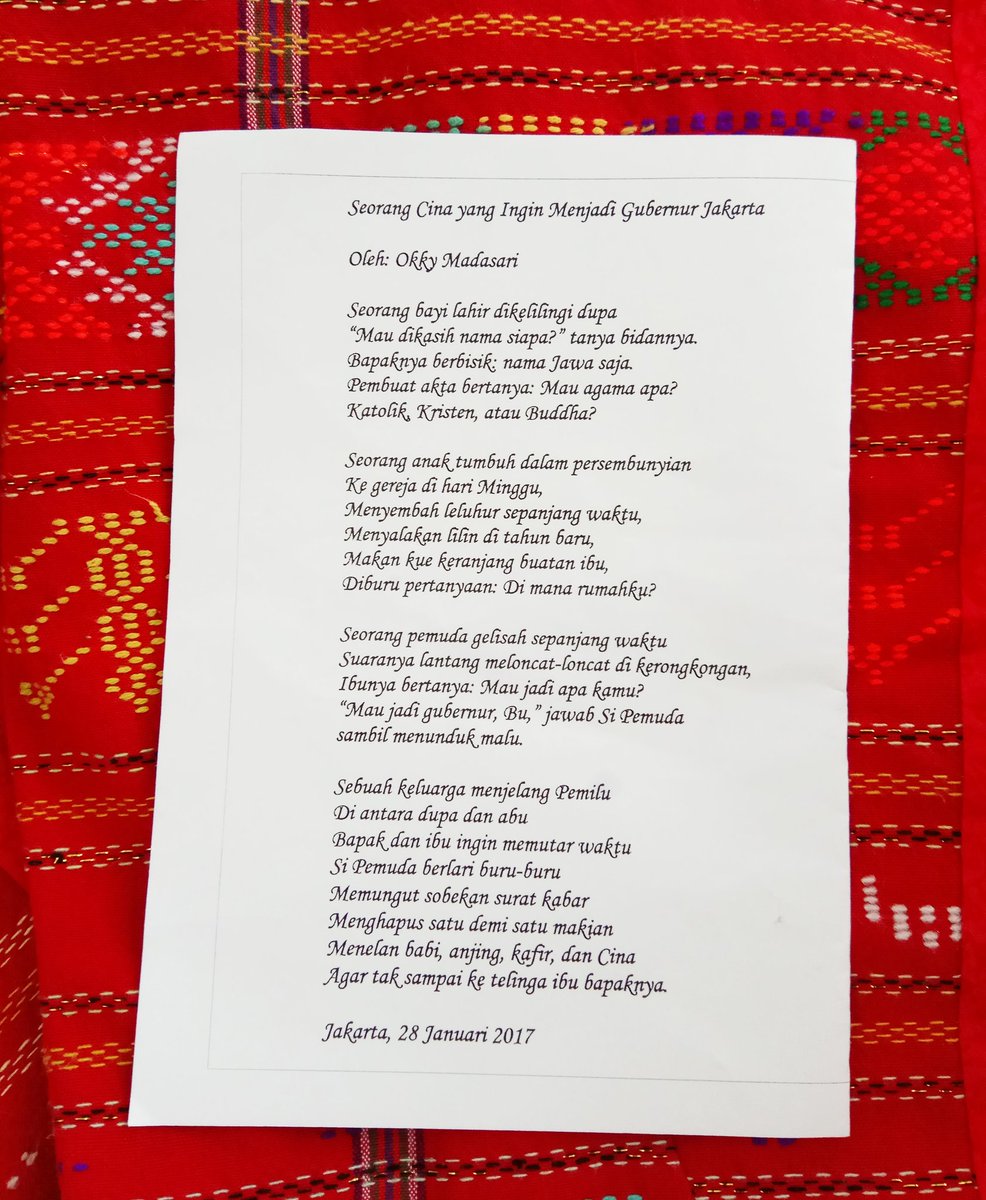 Seorang Cina yang Ingin Menjadi Gubernur Jakarta
Oleh: Okky Madasari
Seorang bayi lahir dikelilingi dupa
“Mau dikasih nama siapa?” tanya bidannya.
Bapaknya berbisik: nama Jawa saja.
Pembuat akta bertanya: Mau agama apa?
Katolik, Kristen, atau Buddha?
Seorang anak tumbuh dalam persembunyian
Ke gereja di hari Minggu,
Menyembah leluhur sepanjang waktu,
Menyalakan lilin di tahun baru,
Makan kue keranjang buatan ibu,
Diburu pertanyaan: Di mana rumahku?
Seorang pemuda gelisah sepanjang waktu
Suaranya lantang meloncat-loncat di kerongkongan,
Ibunya bertanya: Mau jadi apa kamu?
“Mau jadi gubernur, Bu,” jawab Si Pemuda
sambil menunduk malu.
Sebuah keluarga menjelang Pemilu
Di antara dupa dan abu
Bapak dan ibu ingin memutar waktu
Si Pemuda berlari buru-buru
Memungut sobekan surat kabar
Menghapus satu demi satu makian
Menelan babi, anjing, kafir, dan Cina
Agar tak sampai ke telinga ibu bapaknya.
Jakarta, 28 Januari 2017